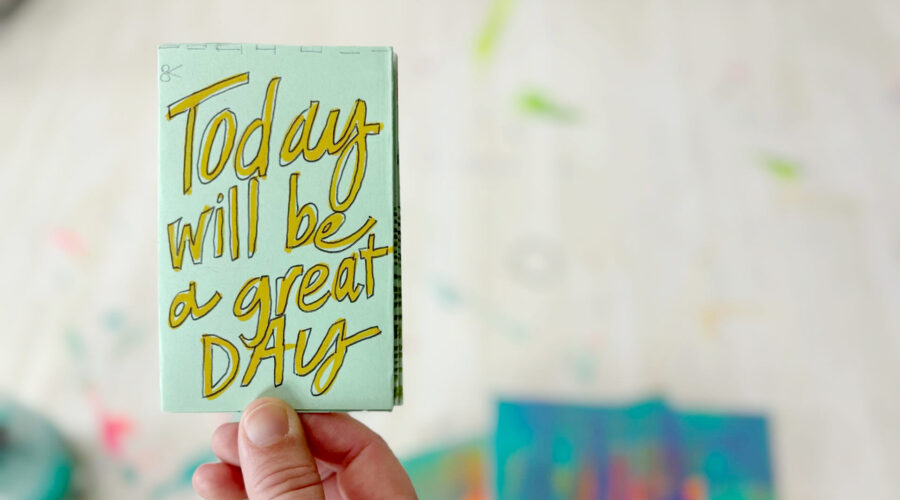 Today
will be
a great
DAy